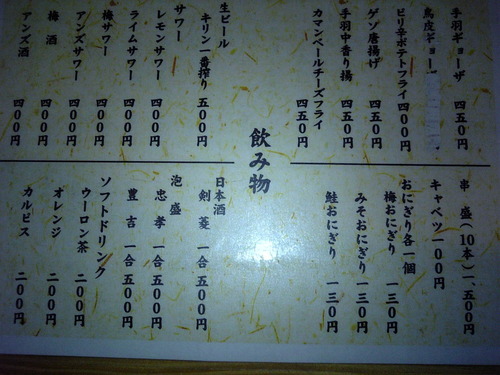 手羽ギョーザ 四五〇円
鳥皮ギョーザ
ピリ辛ポテトフライ 四〇〇円
ゲソ唐揚げ 四五〇円
手羽中香り揚 四五〇円
カマンベールチーズフライ 四五〇円
串盛(10本) 一、五〇〇円
キャベツ 一〇〇円
おにぎり各一個
梅おにぎり 一三〇円
みそおにぎり 一三〇円
鮭おにぎり 一三〇円
飲み物
生ビール
キリン一番搾り 五〇〇円
サワー
レモンサワー 四〇〇円
ライムサワー 四〇〇円
梅サワー 四〇〇円
アンズサワー 四〇〇円
梅酒 四〇〇円
アンズ酒 四〇〇円
日本酒
剣菱 一合 五〇〇円
泡盛
忠孝 一合 五〇〇円
豊吉 一合 五〇〇円
ソフトドリンク
ウーロン茶 二〇〇円
オレンジ 二〇〇円
カルピス 二〇〇円